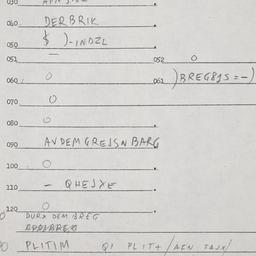 030
040 DERBRIK
050 $ )-INDZL
051
052 O
060 O
061 )BREG8JS=-)
070 O
080 O
090 AVDEMGREJSNBARG
100 O
110 - QHEJXE
120 O
DURX DEM BREG
PLITIM QI PLIT+/AEN TAJX/